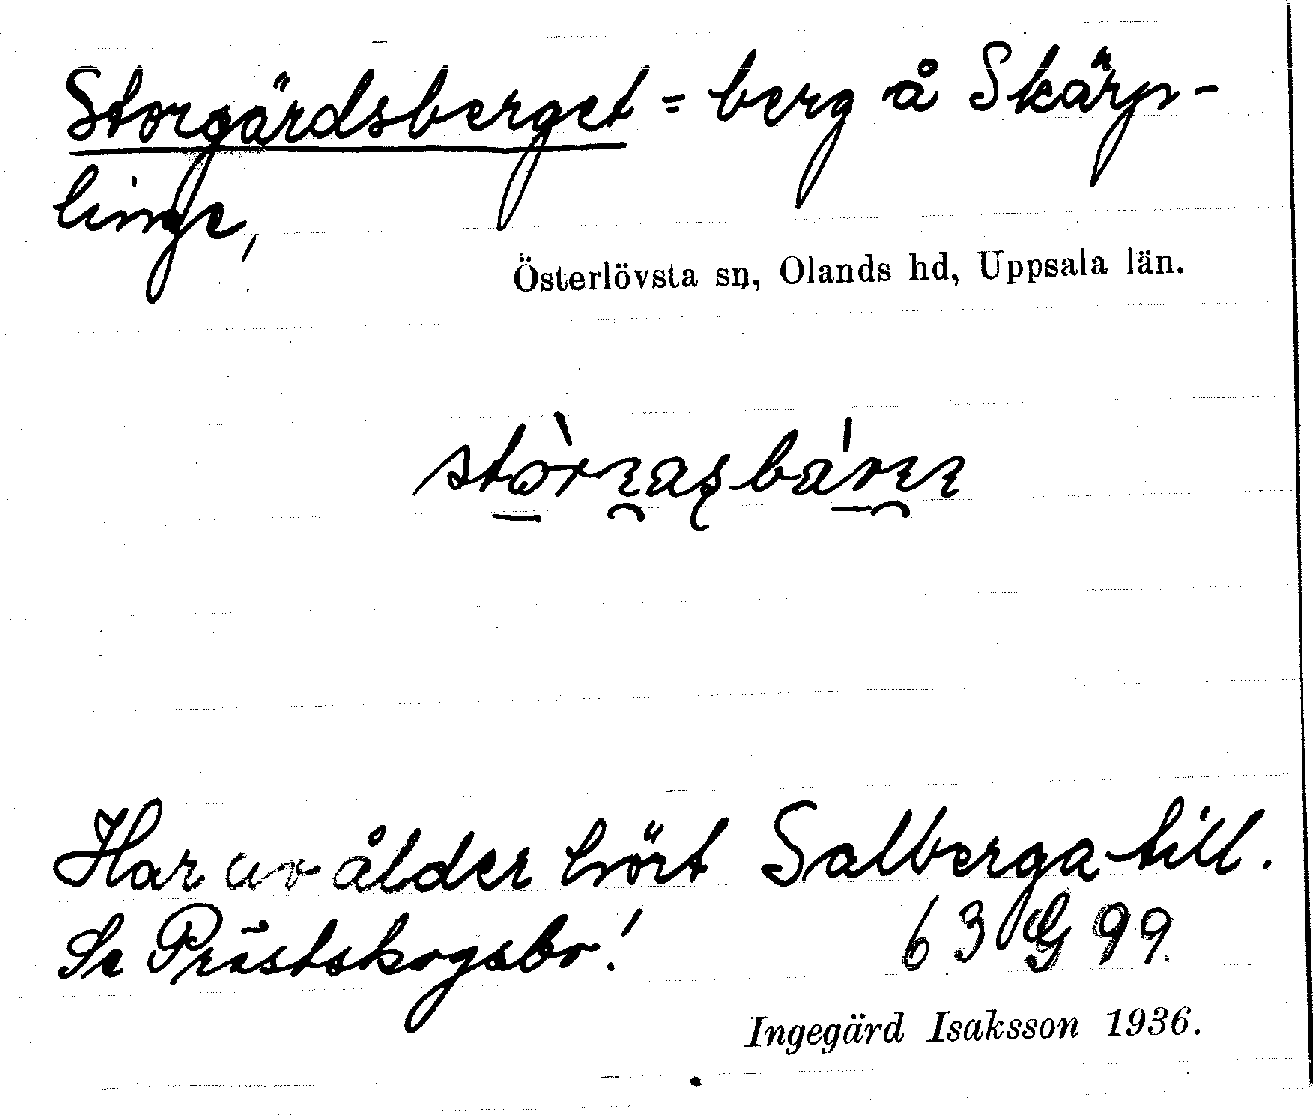 Storgärdsberget = berg å Skärp-
linge,
Österlövsta sn, Olands hd, Uppsala län.
Har av ålder hört Salberga till.
Se Prästskogsbo! 63 G 99
Ingegärd Isaksson 1936.